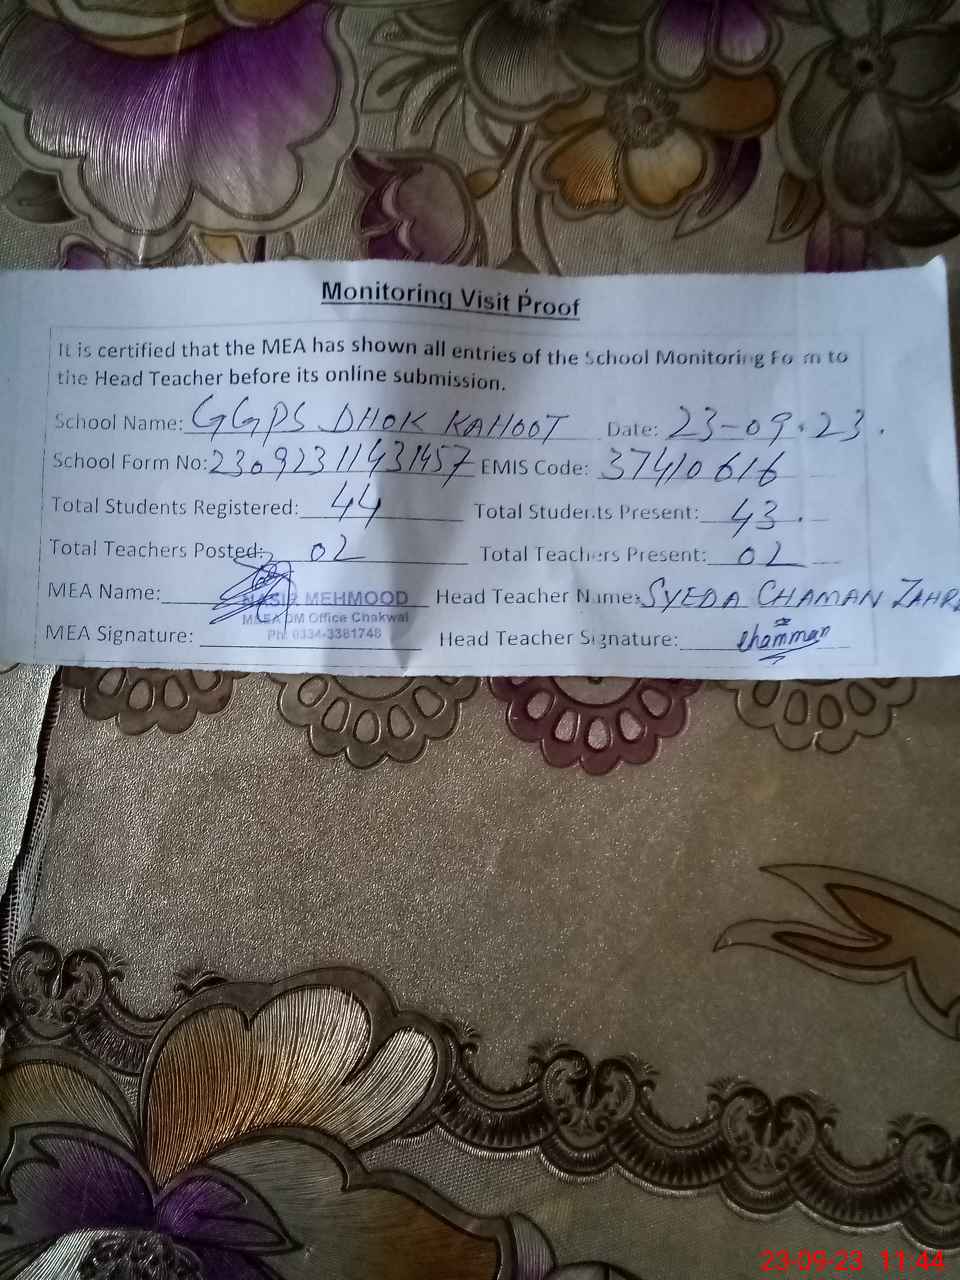 Monitoring Visit Proof
It is certified that the MEA has shown all entries of the School Monitoring Form to
the Head Teacher before its online submission.
School Name: GGPS DHOK KAHOOT Date: 23-09-23.
School Form No: 23092311431457 EMIS Code: 37410616
Total Students Registered: 44 Total Students Present: 43.
Total Teachers Posted: 02 Total Teachers Present: 02
MEA Name: NASIR MEHMOOD Head Teacher Name: SYEDA CHAMAN ZAHR
MEA DM Office Chakwal
MEA Signature: Ph: 0334-3381748 Head Teacher Signature: chamman
23-09-23 11:44